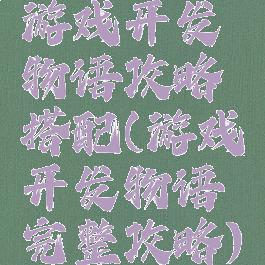 游戏开发
物语攻略
搭配(游戏
开发物语
完整攻略)